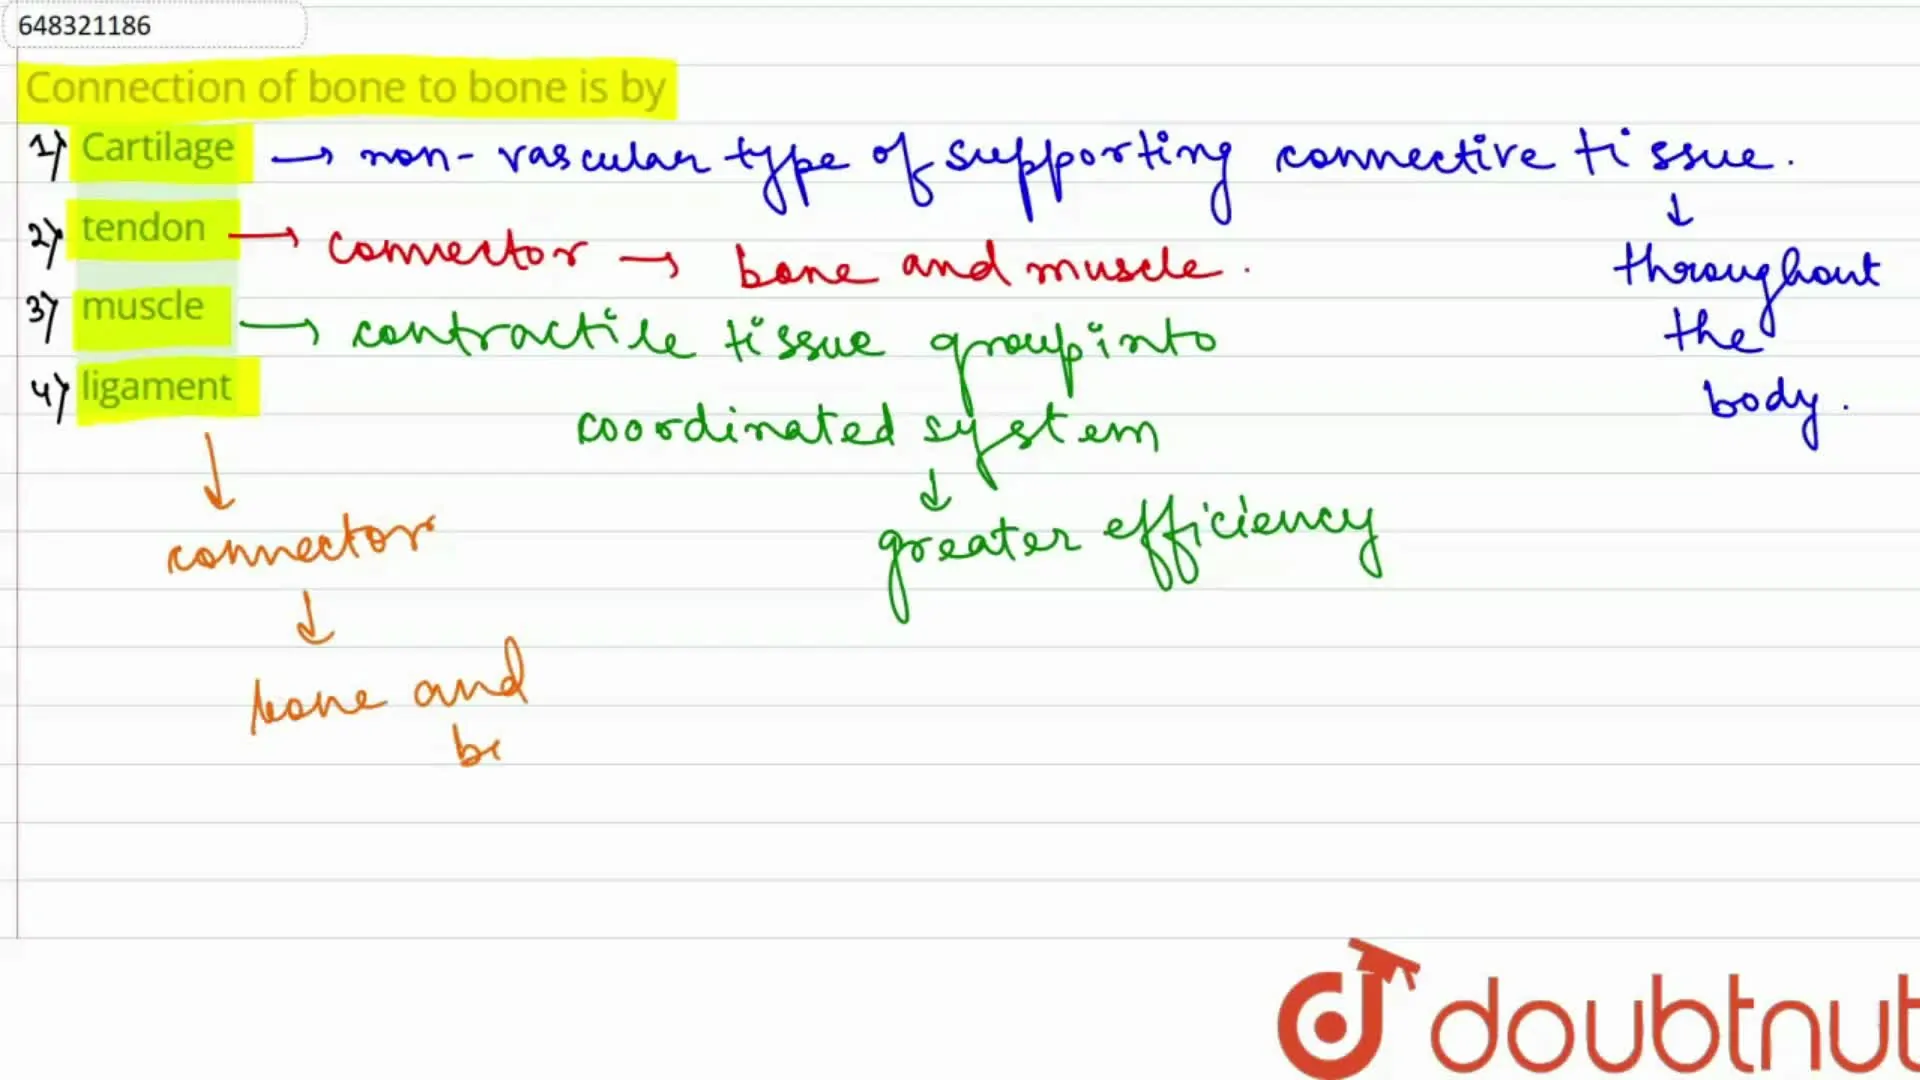 648321186
Connection of bone to bone is by
1) Cartilage → non-vascular type of supporting connective tissue.
↓
throughout
the
body.
2) tendon → connector → bone and muscle.
3) muscle → contractile tissue group into
coordinated system
↓
greater efficiency
4) ligament
↓
connector
↓
bone and
bo
doubtnut